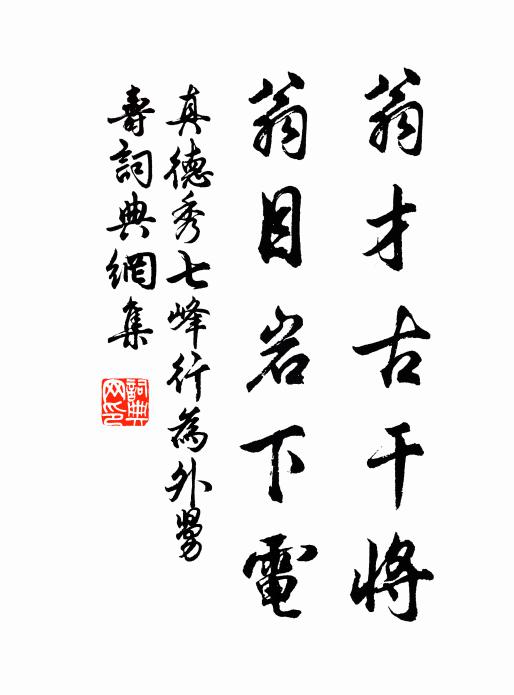 翁才古干將
翁目岩下電
真德秀七峰行為外舅
壽詞典網集
詞典網印